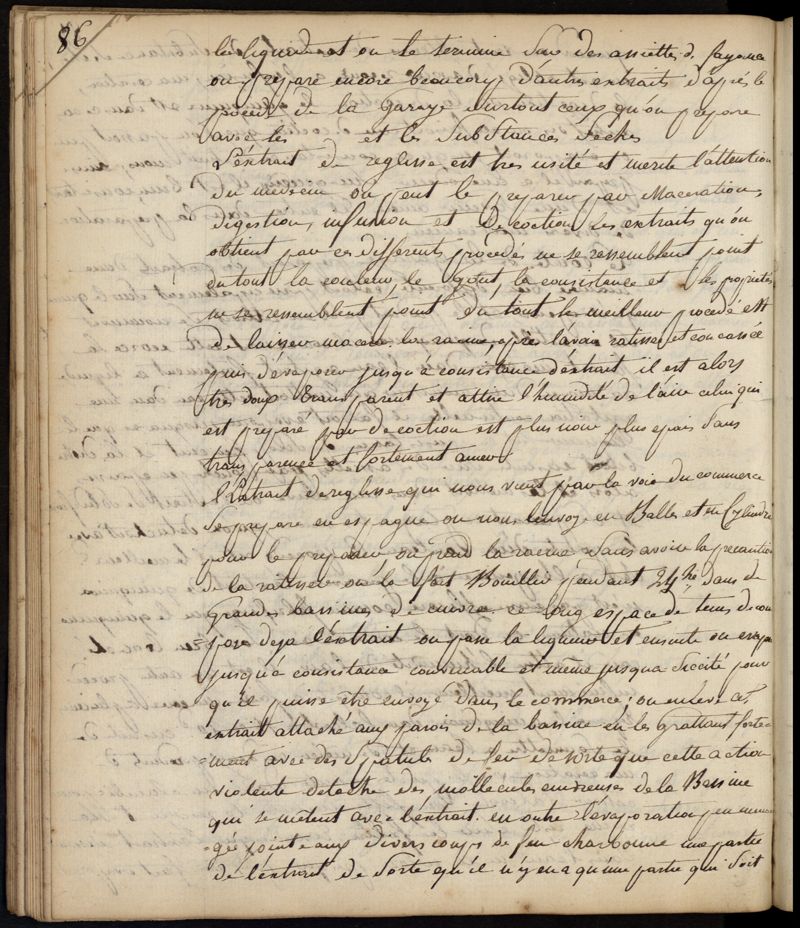 86
le liquide et on le termine sur des assiettes de fayence
on prepare encore beaucoup d'autres extraits d'après le
procedé de la Garaye surtout ceux qu'on prepare
avec les et les Substances Seches
L'éxtrait de reglisse est tres usité et merite l'attention
Du medecin on peut le preparer par Maceration,
digestion, infusion et Decoction les extraits qu'on
obtient par ces differents procedés ne se ressemblent point
du tout la couleur, le gout, la consistance et les proprietés
ne se ressemblent point du tout le meilleur procedé est
De laisser macerer la racine, après l'avoir ratissée et concassée
puis d'évaporer jusqu'à consistance d'éxtrait il est alors
tres doux transparent et attire l'humidité de l'air celui qui
est preparé par decoction est plus noir plus epais Sans
transparence et fortement amer.
L'Extrait de reglisse qui nous vient par la voie du commerce
Se prepare en espagne on nous l'envoye en Balles et en Cylindre
pour le preparer on prend la racine Sans avoir la precaution
de la ratisser on la fait Bouillir pendant 24 hre dans de
Grandes bassines de cuivre ce long espace de tems decom
pose deja l'éxtrait on passe la liqueur et ensuite on evapore
jusqu'à consistance convenable et même jusqua Siccité pour
qu'il puisse être envoyé dans le commerce; on enleve cet
extrait attaché aux parois de la bassine en les Grattant forte=
=ment avec des Spatules de fer de sorte que cette action
violente detache des mollécules cuivreuses de la Bassine
qui se mêlent avec l'éxtrait. en outre l'évaporation
=gée jointe aux divers coups de feu charbonne une partie
de l'extrait de Sorte qu'il n'y en a qu'une partie qui Soit